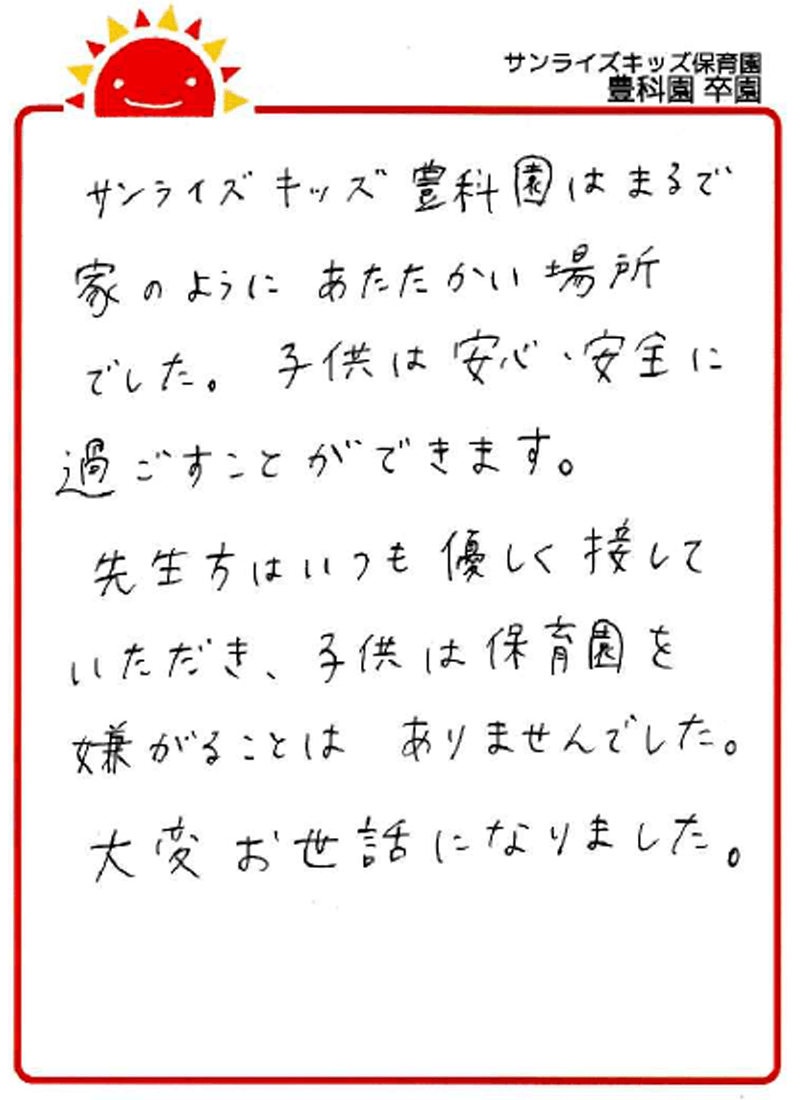 サンライズキッズ保育園
豊科園 卒園
サンライズ キッズ 豊科園はまるで
家のように あたたかい 場所
でした。 子供は 安心・安全に
過ごすことができます。
先生方はいつも 優しく 接して
いただき、子供は 保育園を
嫌がることは ありませんでした。
大変 お世話になりました。